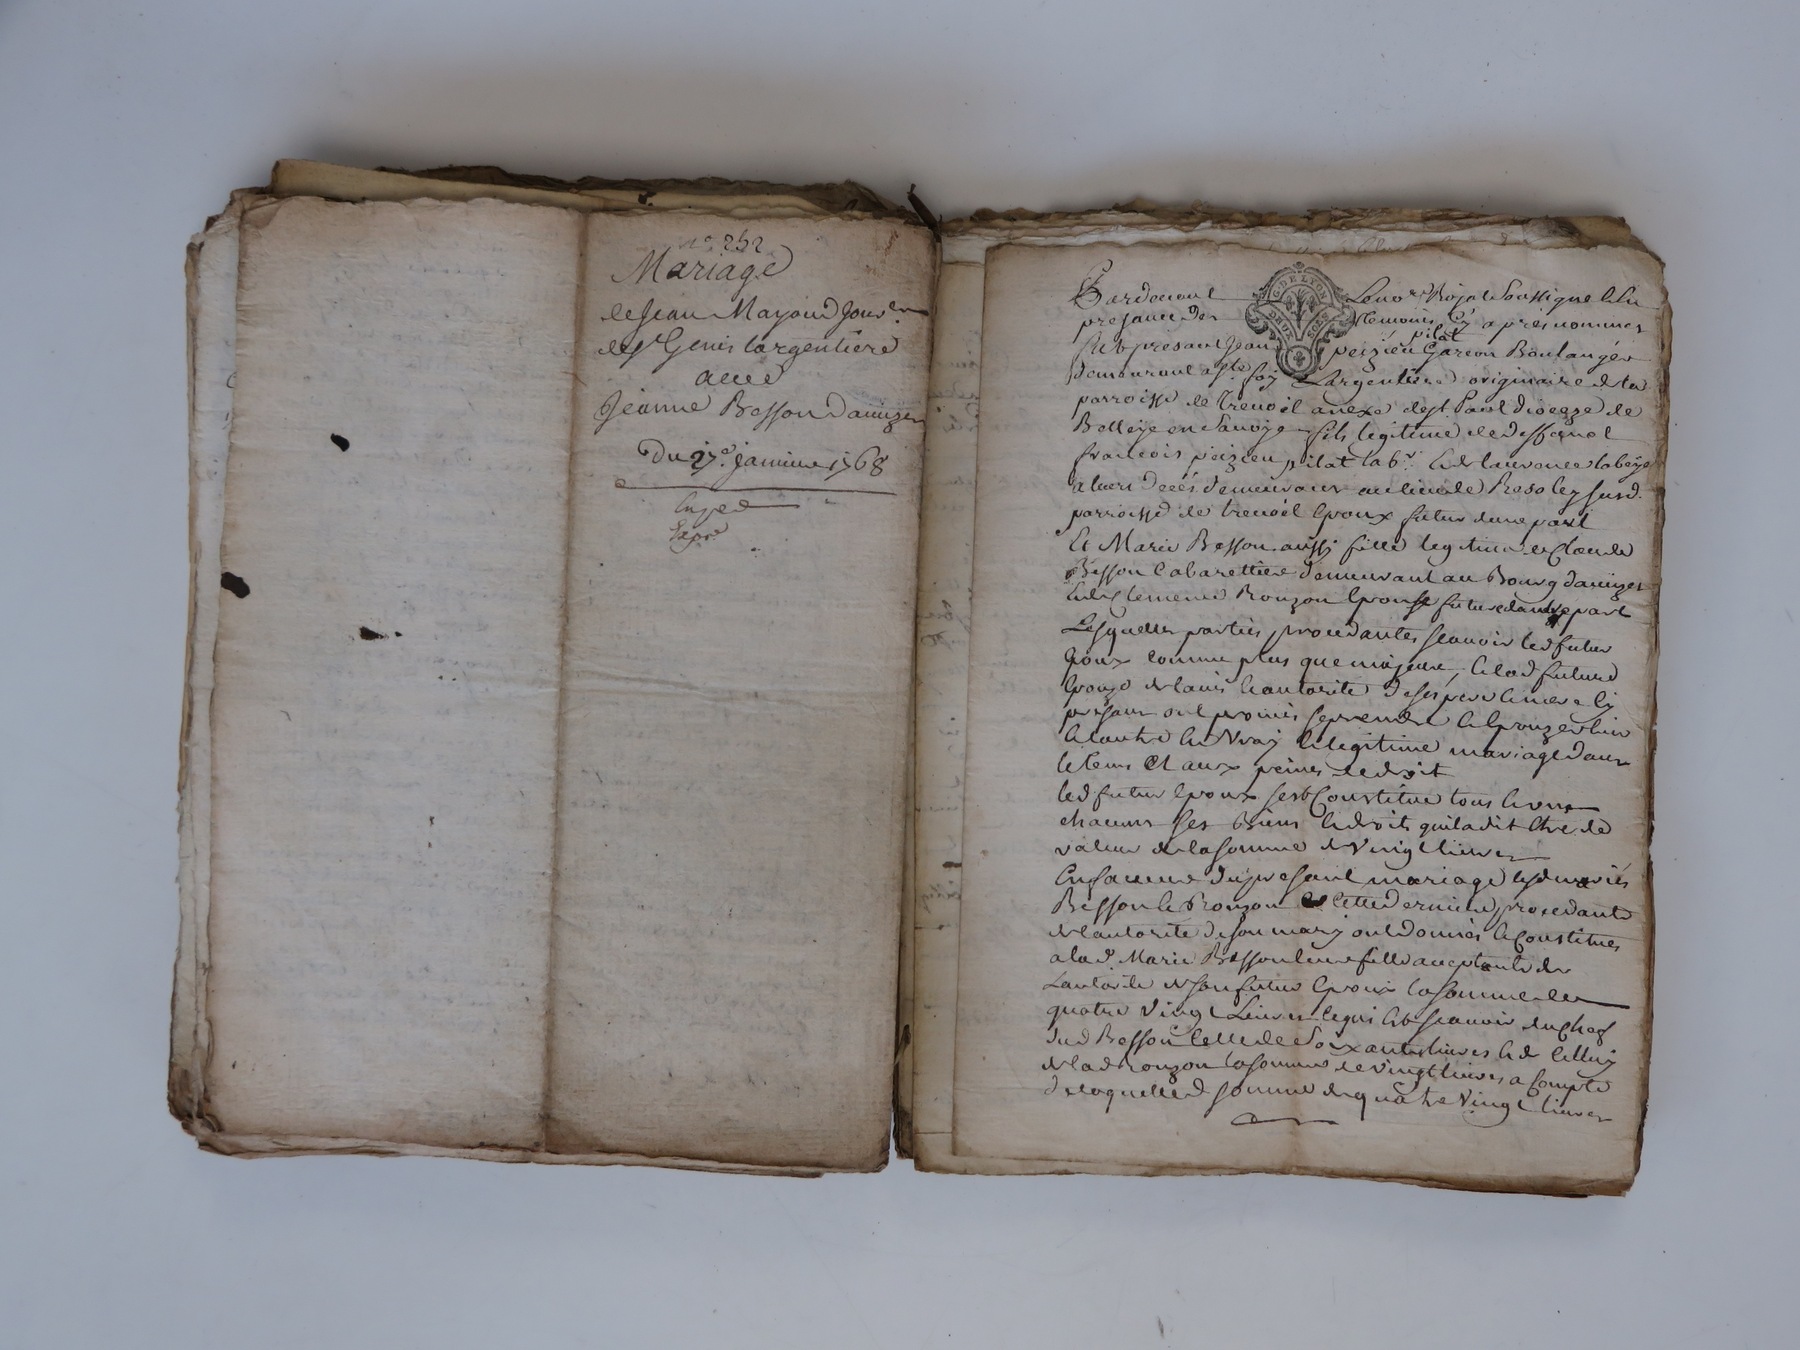 n° 252
Mariage
de Jean Mayoud Jour.er
de St Genis largentiere
avec
Jeanne Besson daveizes
Du 27.e janvier 1768
Exped
G. DE LYON
DEUX SOLS
Pardevant Le nore Royal Soussigné et En
presance des temoins Cy apres nommes
fut presant Jean pilat
peizieu Garcon Boulanger
demeurant a ste foy Largentiere originaire de la
parroisse de trenoël anexe de st. Paul dioceze de
Belleÿe en Savoÿe fils legitime de deffunt
francois peizieu pilat lab.r Et de laurence
a leurs décés demeurans au lieu de susd.
parroisse de trenoël Epoux futur dune part
Et Marie Besson aussi fille legitime de Claude
Besson Cabarettier demeurant au Bourg daveizes
Et de Clemence Ronzon Epouse future dautre part
Lesquelles parties procedantes scavoir led futur
Epoux comme plus que majeur, et lad future
Epouze de lavis Et autorité de ses pere et mere Cy
presans ont promis se prendre et Epouzer lun
et lautre En Vray et legitime mariage dans
le tems Et aux peines de droit
led futur Epoux sest Constitué tous Et uns
chacuns ses Biens Et droits quil a dit Etre de
valeur de la somme de Vingt livres
En faveur du present mariage lesd mariés
Besson et Ronzon Et cette derniere procedante
de lautorité de son mary ont donnés et Constitués
a lad. Marie Besson leur fille acceptante de
Lautorité de son futur Epoux la somme de
quatre Vingt Livres le qui Est scavoir du Chef
dud Besson Celle de Soixante livres Et de Celluy
de lad Ronzon la somme de vingt livres a Compte
de laquelle d somme de quatre Vingt livres